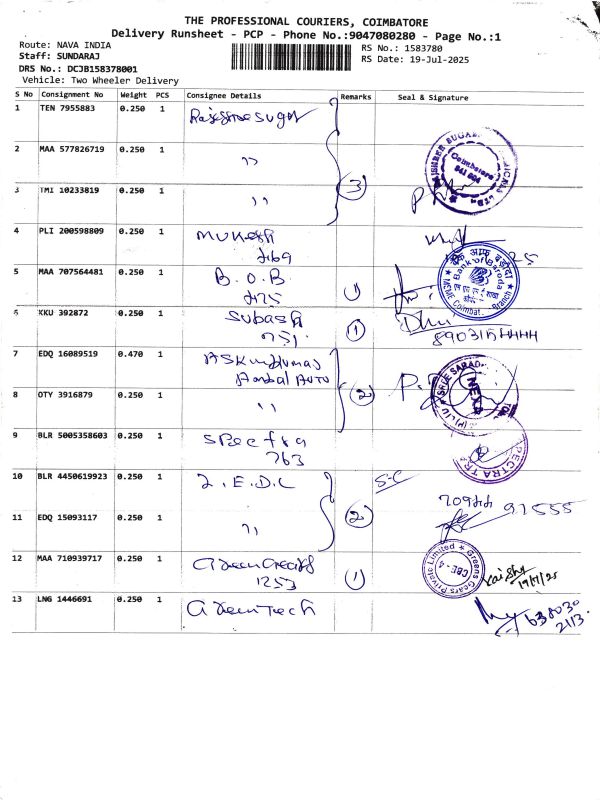 THE PROFESSIONAL COURIERS, COIMBATORE
Delivery Runsheet - PCP - Phone No.:9047080280 - Page No.:1
Route: NAVA INDIA
RS No.: 1583780
Staff: SUNDARAJ
RS Date: 19-Jul-2025
DRS No.: DCJB158378001
Vehicle: Two Wheeler Delivery
S No Consignment No Weight PCS Consignee Details Remarks Seal & Signature
1 TEN 7955883 0.250 1
2 MAA 577826719 0.250 1 ,,
3 TMI 10233819 0.250 1 ,, 3
Coimbatore
641 604
4 PLI 200598809 0.250 1 Mukesh
5 MAA 707564481 0.250 1 B.O.B. 1
बैंक ऑफ़ बड़ौदा
Bank of Baroda
6 KKU 392872 0.250 1 Subash 1
751
7 EDQ 16089519 0.470 1
Ambal Auto
NEXA
8 OTY 3916879 0.250 1 ,, 2
9 BLR 5005358603 0.250 1 Spectra
763
SPECTRA
10 BLR 4450619923 0.250 1 S-C
91555
11 EDQ 15093117 0.250 1 ,, 2
12 MAA 710939717 0.250 1 Green Gears 1
1253
Greens Gears Private Limited
CBE - 4
19/7/25
13 LNG 1446691 0.250 1 Green Tech
638030
2113.